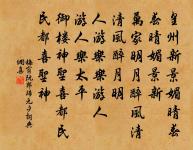 皇州新景媚晴春
春晴媚景新
萬家明月醉風清
清風醉月明
人遊樂樂遊人
遊人樂太平
御樓神聖喜都民
民都喜聖神
梅窗阮郎歸元夕詞典